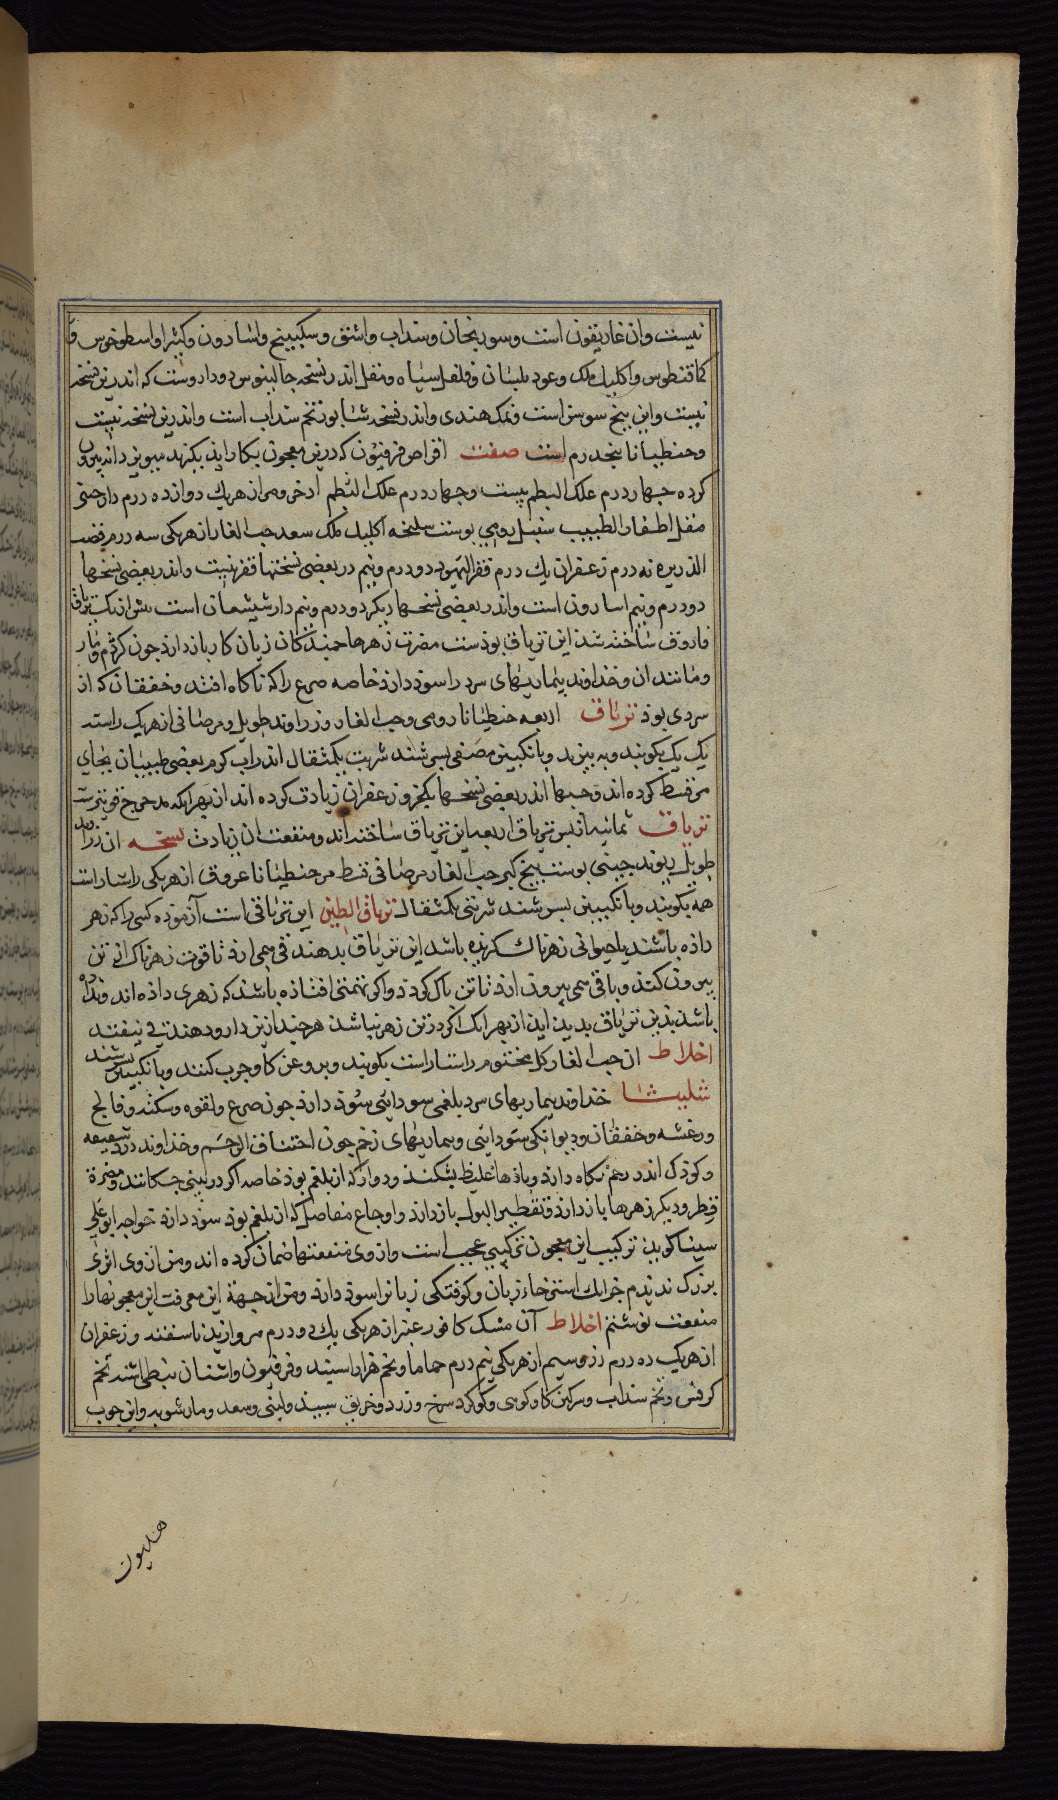 نیست وان غاریقون است وسورنجان وسنداب واشق وسکبینج واسارون وکثیرا واسطوخوس و
کمافیطوس واکلیل ملک وعود بلسان وفلفل سیاه ومقل اندر نسخه جالینوس دو داروست که اندرین نسخه
نیست واین بیخ سوس است ونمک هندی واندر نسخه شابور تخم سنداب است واندرین نسخه نیست
وجنطیانا پنجدرم است صفت اقراص فرفیون که درین معجون بکار اید بکیرند میویز دانه بیرون
کرده جهار درم علک البطم بیست وجهار درم علک البطم اذخر ومر از هریک دوازده درم دارجینی
مقل اظفار الطیب سنبل رومی بوست سلیخه اکلیل ملک سعد حب الغار از هریکی سه درم قصب
الذریره نه درم زعفران یک درم قفر الیهود دو درم ونیم در بعضی نسختها قفر نیست واندر بعضی نسخها
دو درم ونیم اسارون است واندر بعضی نسخها دیکر دو درم ونیم دار شیشعان است بیش از تریاق
فاروق ساخته شد این تریاق بوذست مضرت زهرها جنبندکان زیان کار باز دارذ جون کژدم ومار
ومانند ان وخذاوند بیماریهای سرد را سوذ دارذ خاصه صرع را که ناکاه افتد وخفقان که از
سردی بوذ تریاق اربعه جنطیانا رومی وحب الغار وزراوند طویل ومر صافی از هریک راستد
یک یک بکوبند وبه بیزند وبانکبین مصفی بسرشند شربت یکمثقال اندر اب کرم بعضی طبیبان بجای
مر قسط کرده اند وحبها اندر بعضی نسخها یکجزو زعفران زیادت کرده اند از بهر انکه مدحرج قویترست
تریاق ثمانیه از بس تریاق اربعه این تریاق ساخته اند ومنفعت ان زیادت نسخه ان زراوند
طویل ریوند جینی بوست بیخ کبر حب الغار مر صافی قسط مر جنطیانا عروق از هریکی راستاراست
همه بکوبند وبانکبین بسرشند شربتی یکمثقال تریاق الطین این تریاقی است آزموده کسی را که زهر
داده باشند یا حیوانی زهرناک کزیده باشد این تریاق بدهند قی همی ارذ تا قوت زهرناک از تن
بیرون کند وباقی همی بیرون ارذ تا تن باک کردد واکر تهمتی افتاذه باشد که زهری داذه اند ونداده
باشد بدین تریاق بدید اید از بهر انک اکر در تن زهر نباشد هرجند ازین دارو دهند قی نیفتد
اخلاط ان حب الغار کل مختوم راستاراست بکوبند وبروغن کاو جرب کنند وبانکبین بسرشند
شلیثا خذاوند بیماریهای سرد بلغمی سودائی سوذ دارذ جون صرع ولقوه وسکته وفالج
ورعشه وخفقان ودیوانکی سودائی وبیماریهای زخم جون اختناق الرحم وخذاوند درد شقیقه
وکوذک اندر رحم نکاه دارذ وباذها غلیظ بشکند ودوار که از بلغم بوذ خاصه اکر در بینی جکانند ومضرة
فطر ودیکر زهرها باز دارذ وتقطیر البول باز دارذ واوجاع مفاصل که از بلغم بوذ سوذ دارذ خواجه ابو علی
سینا کوید ترکیب این معجون ترکیبی عجب است واز وی منفعتها ضمان کرده اند ومن از وی اثری
بزرک ندیدم جز انک استرخاء زبان وکوفتکی زبان را سوذ دارذ ومن از جهة این معرفت این معجونها را
منفعت نوشتم اخلاط آن مشک کافور عنبر از هریکی یک دو درم مروارید ناسفته وزعفران
از هریک ده درم زر وسیم از هریکی نیم درم حماما وتخم هزاراسبند وفرفیون واشنان نبطی اشنه تخم
کرفس وتخم سنداب وسرکین کاو کوهی وکوکرد سرخ وزرد وخربق سبید وابنی وسعد ومارشویه واین جوب
هلیون